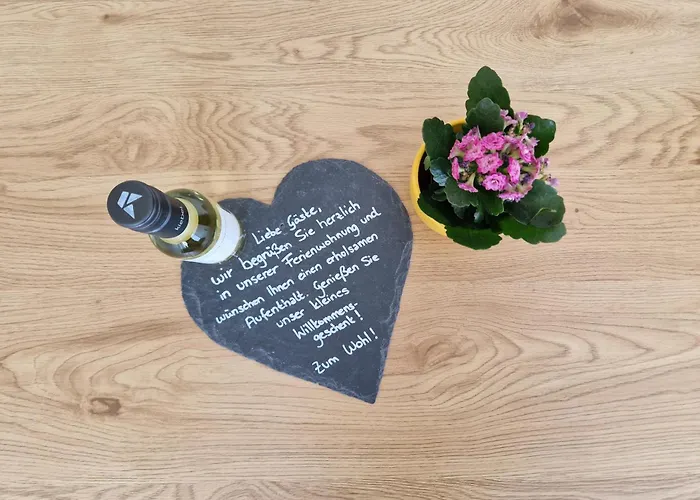 Liebe Gäste,
wir begrüßen Sie herzlich
in unserer Ferienwohnung und
wünschen Ihnen einen erholsamen
Aufenthalt. Genießen Sie
unser kleines
Willkommens-
geschenk!
Zum Wohl!